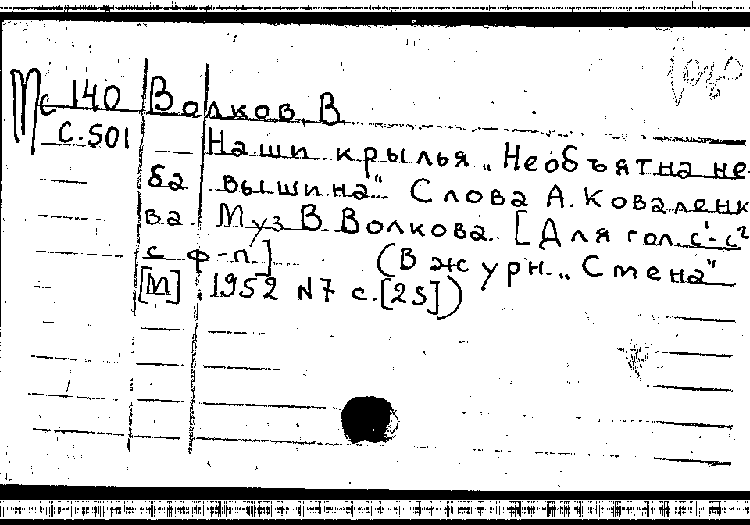 Мс 140 Волков, В
С.501 Наши крылья „Необъятна не-
ба вышина" Слова А. Коваленко-
ва. Муз В Волкова. [Для гол. с¹-с²
с ф-п.] (В журн. „Смена"
[М] 1952 N7 с.[25])